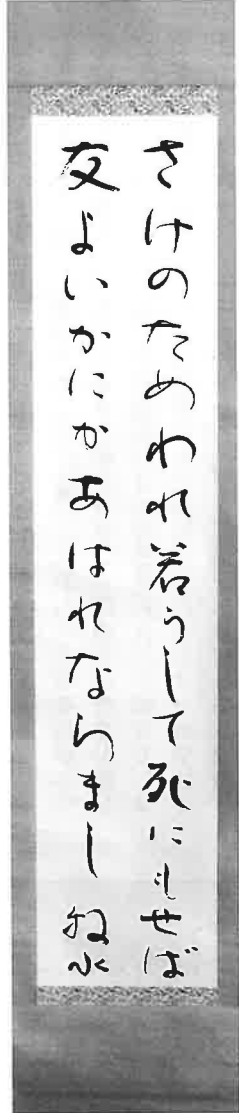 さけのためわれ若うして死にもせば
友よいかにかあはれならまし 牧水